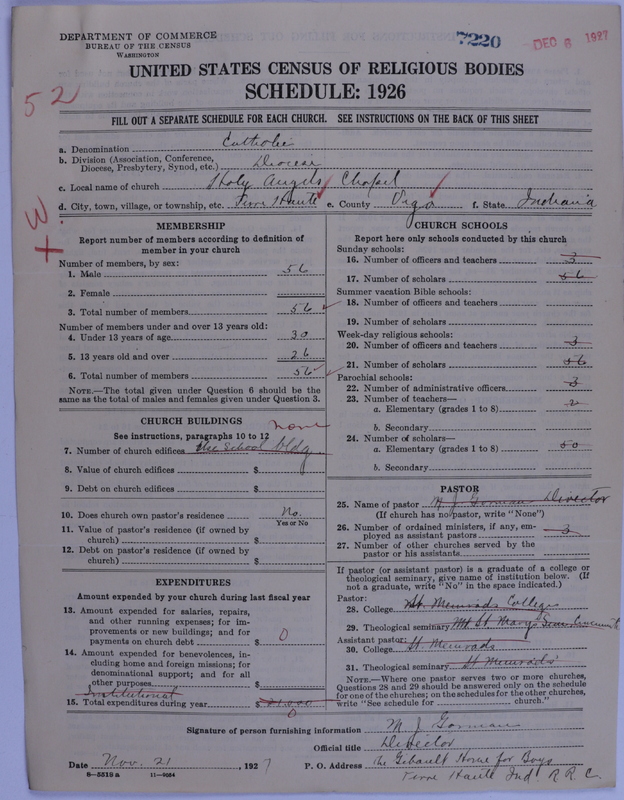 DEPARTMENT OF COMMERCE
BUREAU OF THE CENSUS
WASHINGTON
7220
DEC 6 1927
52
UNITED STATES CENSUS OF RELIGIOUS BODIES
SCHEDULE: 1926
FILL OUT A SEPARATE SCHEDULE FOR EACH CHURCH. SEE INSTRUCTIONS ON THE BACK OF THIS SHEET
a. Denomination Catholic
b. Division (Association, Conference,
Diocese, Presbytery, Synod, etc.) Diocese
c. Local name of church Holy Angels Chapel
d. City, town, village, or township, etc. Terre Haute e. County Vigo f. State Indiana
W.
MEMBERSHIP
Report number of members according to definition of
member in your church
Number of members, by sex:
1. Male 56
2. Female
3. Total number of members 56
Number of members under and over 13 years old:
4. Under 13 years of age 30
5. 13 years old and over 26
6. Total number of members 56
NOTE.—The total given under Question 6 should be the
same as the total of males and females given under Question 3.
CHURCH BUILDINGS
none
See instructions, paragraphs 10 to 12
7. Number of church edifices Use School bldg
8. Value of church edifices $
9. Debt on church edifices $
10. Does church own pastor's residence No.
Yes or No
11. Value of pastor's residence (if owned by
church) $
12. Debt on pastor's residence (if owned by
church) $
EXPENDITURES
Amount expended by your church during last fiscal year
13. Amount expended for salaries, repairs,
and other running expenses; for im-
provements or new buildings; and for
payments on church debt $ 0
14. Amount expended for benevolences, in-
cluding home and foreign missions; for
denominational support; and for all
other purposes $
Institutional
15. Total expenditures during year $
0
CHURCH SCHOOLS
Report here only schools conducted by this church
Sunday schools:
16. Number of officers and teachers 3
17. Number of scholars 56
Summer vacation Bible schools:
18. Number of officers and teachers
19. Number of scholars
Week-day religious schools:
20. Number of officers and teachers 3
21. Number of scholars 56
Parochial schools:
22. Number of administrative officers 3
23. Number of teachers—
a. Elementary (grades 1 to 8) 2
b. Secondary
24. Number of scholars—
a. Elementary (grades 1 to 8) 50
b. Secondary
PASTOR
25. Name of pastor M. J. Gorman Director
(If church has no pastor, write "None")
26. Number of ordained ministers, if any, em-
ployed as assistant pastors 3
27. Number of other churches served by the
pastor or his assistants
If pastor (or assistant pastor) is a graduate of a college or
theological seminary, give name of institution below. (If
not a graduate, write "No" in the space indicated.)
Pastor:
28. College St. Meinrads College
29. Theological seminary Mt St Marys Sem Cincinnati
Assistant pastor:
30. College St. Meinrads
31. Theological seminary St Meinrads
NOTE.—Where one pastor serves two or more churches,
Questions 28 and 29 should be answered only on the schedule
for one of the churches; on the schedules for the other churches,
write "See schedule for church."
Signature of person furnishing information M. J. Gorman
Official title Director
Date Nov. 21, 1927 P. O. Address The Gibault Home for Boys
8—5519 a 11—9054 Terre Haute Ind. R.R.C.